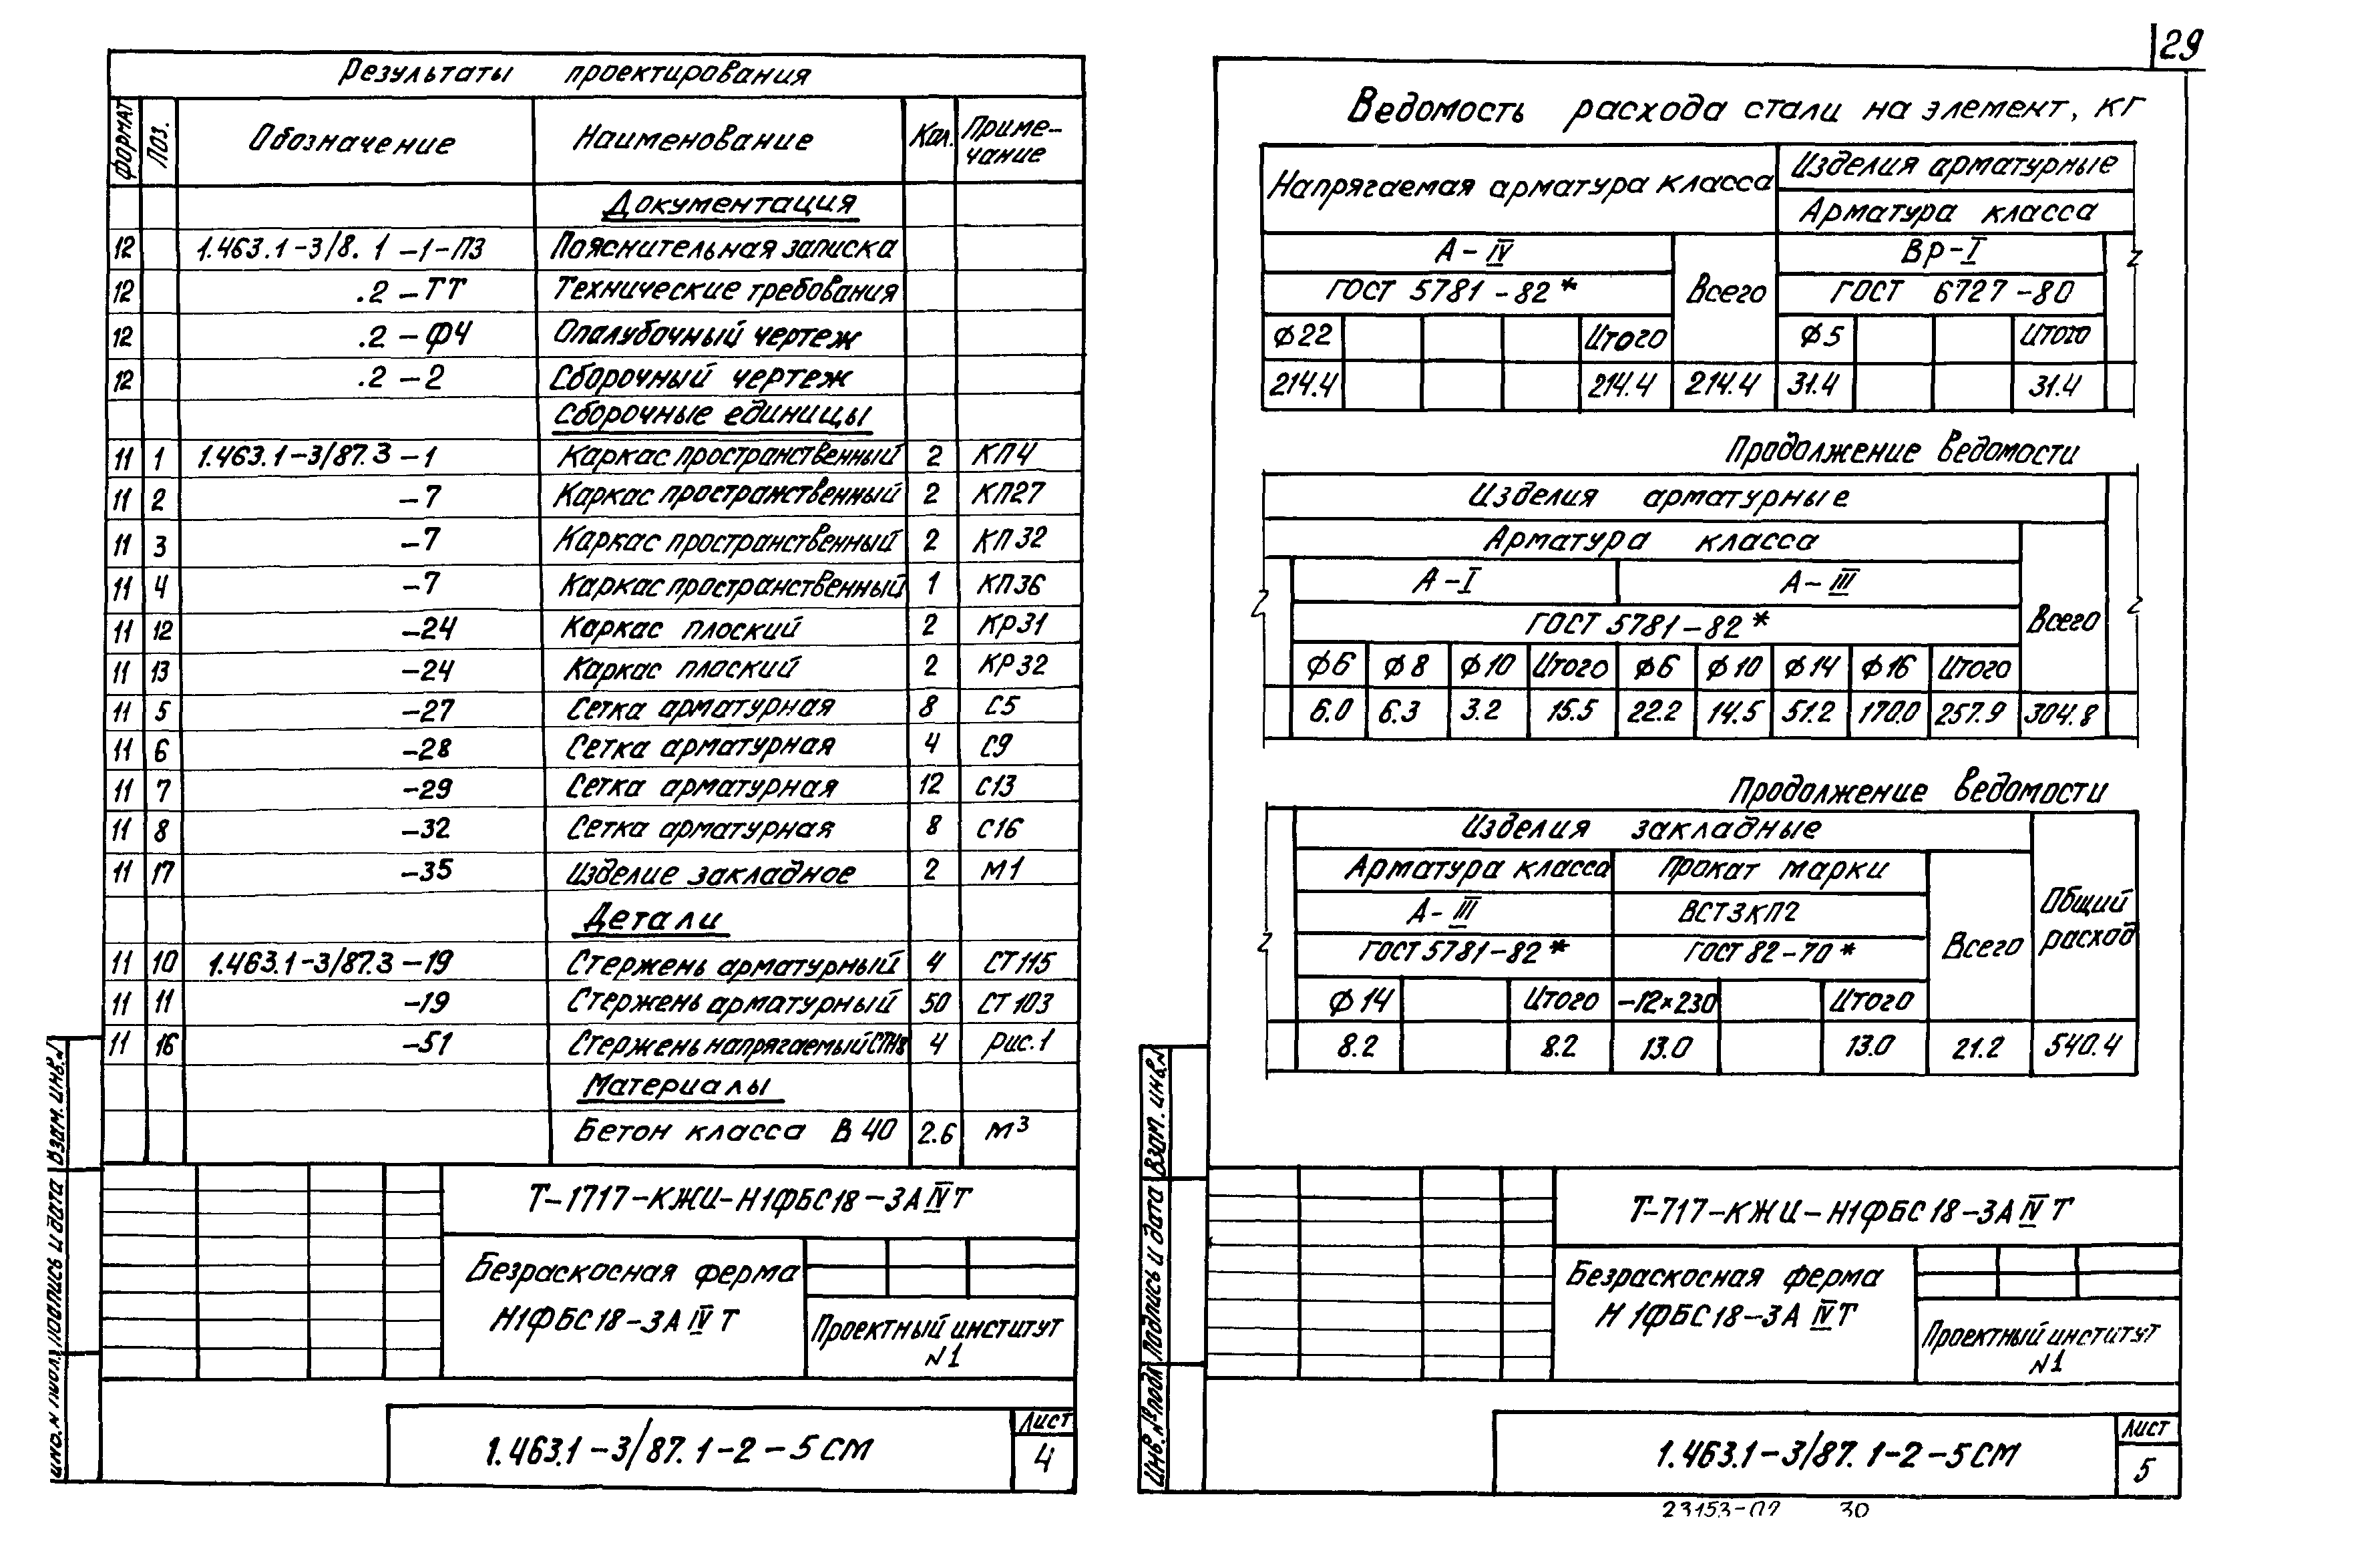 29
Результаты проектирования
ФОРМАТ Поз. Обозначение Наименование Кол. Приме-
чание
Документация
12 1.463.1-3/8.1-1-ПЗ Пояснительная записка
12 .2-ТТ Технические требования
12 .2-ФЧ Опалубочный чертеж
12 .2-2 Сборочный чертеж
Сборочные единицы
11 1 1.463.1-3/87.3-1 Каркас пространственный 2 КП4
11 2 -7 Каркас пространственный 2 КП27
11 3 -7 Каркас пространственный 2 КП32
11 4 -7 Каркас пространственный 1 КП36
11 12 -24 Каркас плоский 2 КР31
11 13 -24 Каркас плоский 2 КР32
11 5 -27 Сетка арматурная 8 С5
11 6 -28 Сетка арматурная 4 С9
11 7 -29 Сетка арматурная 12 С13
11 8 -32 Сетка арматурная 8 С16
11 17 -35 Изделие закладное 2 М1
Детали
11 10 1.463.1-3/87.3-19 Стержень арматурный 4 СТ115
11 11 -19 Стержень арматурный 50 СТ103
11 16 -51 Стержень напрягаемый СТН8 4 рис.1
Материалы
Бетон класса В 40 2.6 м³
Т-1717-КЖИ-Н1ФБС18-3АIVТ
Безраскосная ферма
Н1ФБС18-3АIVТ
Проектный институт
N1
1.463.1-3/87.1-2-5СМ
Лист
4
Взам. инв.N
Подпись и дата
Инв. N подл.
Ведомость расхода стали на элемент, кг
Напрягаемая арматура класса Изделия арматурные
Арматура класса
А-IV Всего Вр-I
ГОСТ 5781-82* ГОСТ 6727-80
ф22 Итого ф5 Итого
214.4 214.4 214.4 31.4 31.4
Продолжение ведомости
Изделия арматурные
Арматура класса Всего
А-I А-III
ГОСТ 5781-82*
ф6 ф8 ф10 Итого ф6 ф10 ф14 ф16 Итого
6.0 6.3 3.2 15.5 22.2 14.5 51.2 170.0 257.9 304.8
Продолжение ведомости
Изделия закладные Общий
расход
Арматура класса Прокат марки Всего
А-III ВСТ3КП2
ГОСТ 5781-82* ГОСТ 82-70*
ф14 Итого -12×230 Итого
8.2 8.2 13.0 13.0 21.2 540.4
Т-717-КЖИ-Н1ФБС18-3АIVТ
Безраскосная ферма
Н1ФБС18-3АIVТ
Проектный институт
N1
1.463.1-3/87.1-2-5СМ
Лист
5
Взам. инв.N
Подпись и дата
Инв. № подл.
23153-02 30